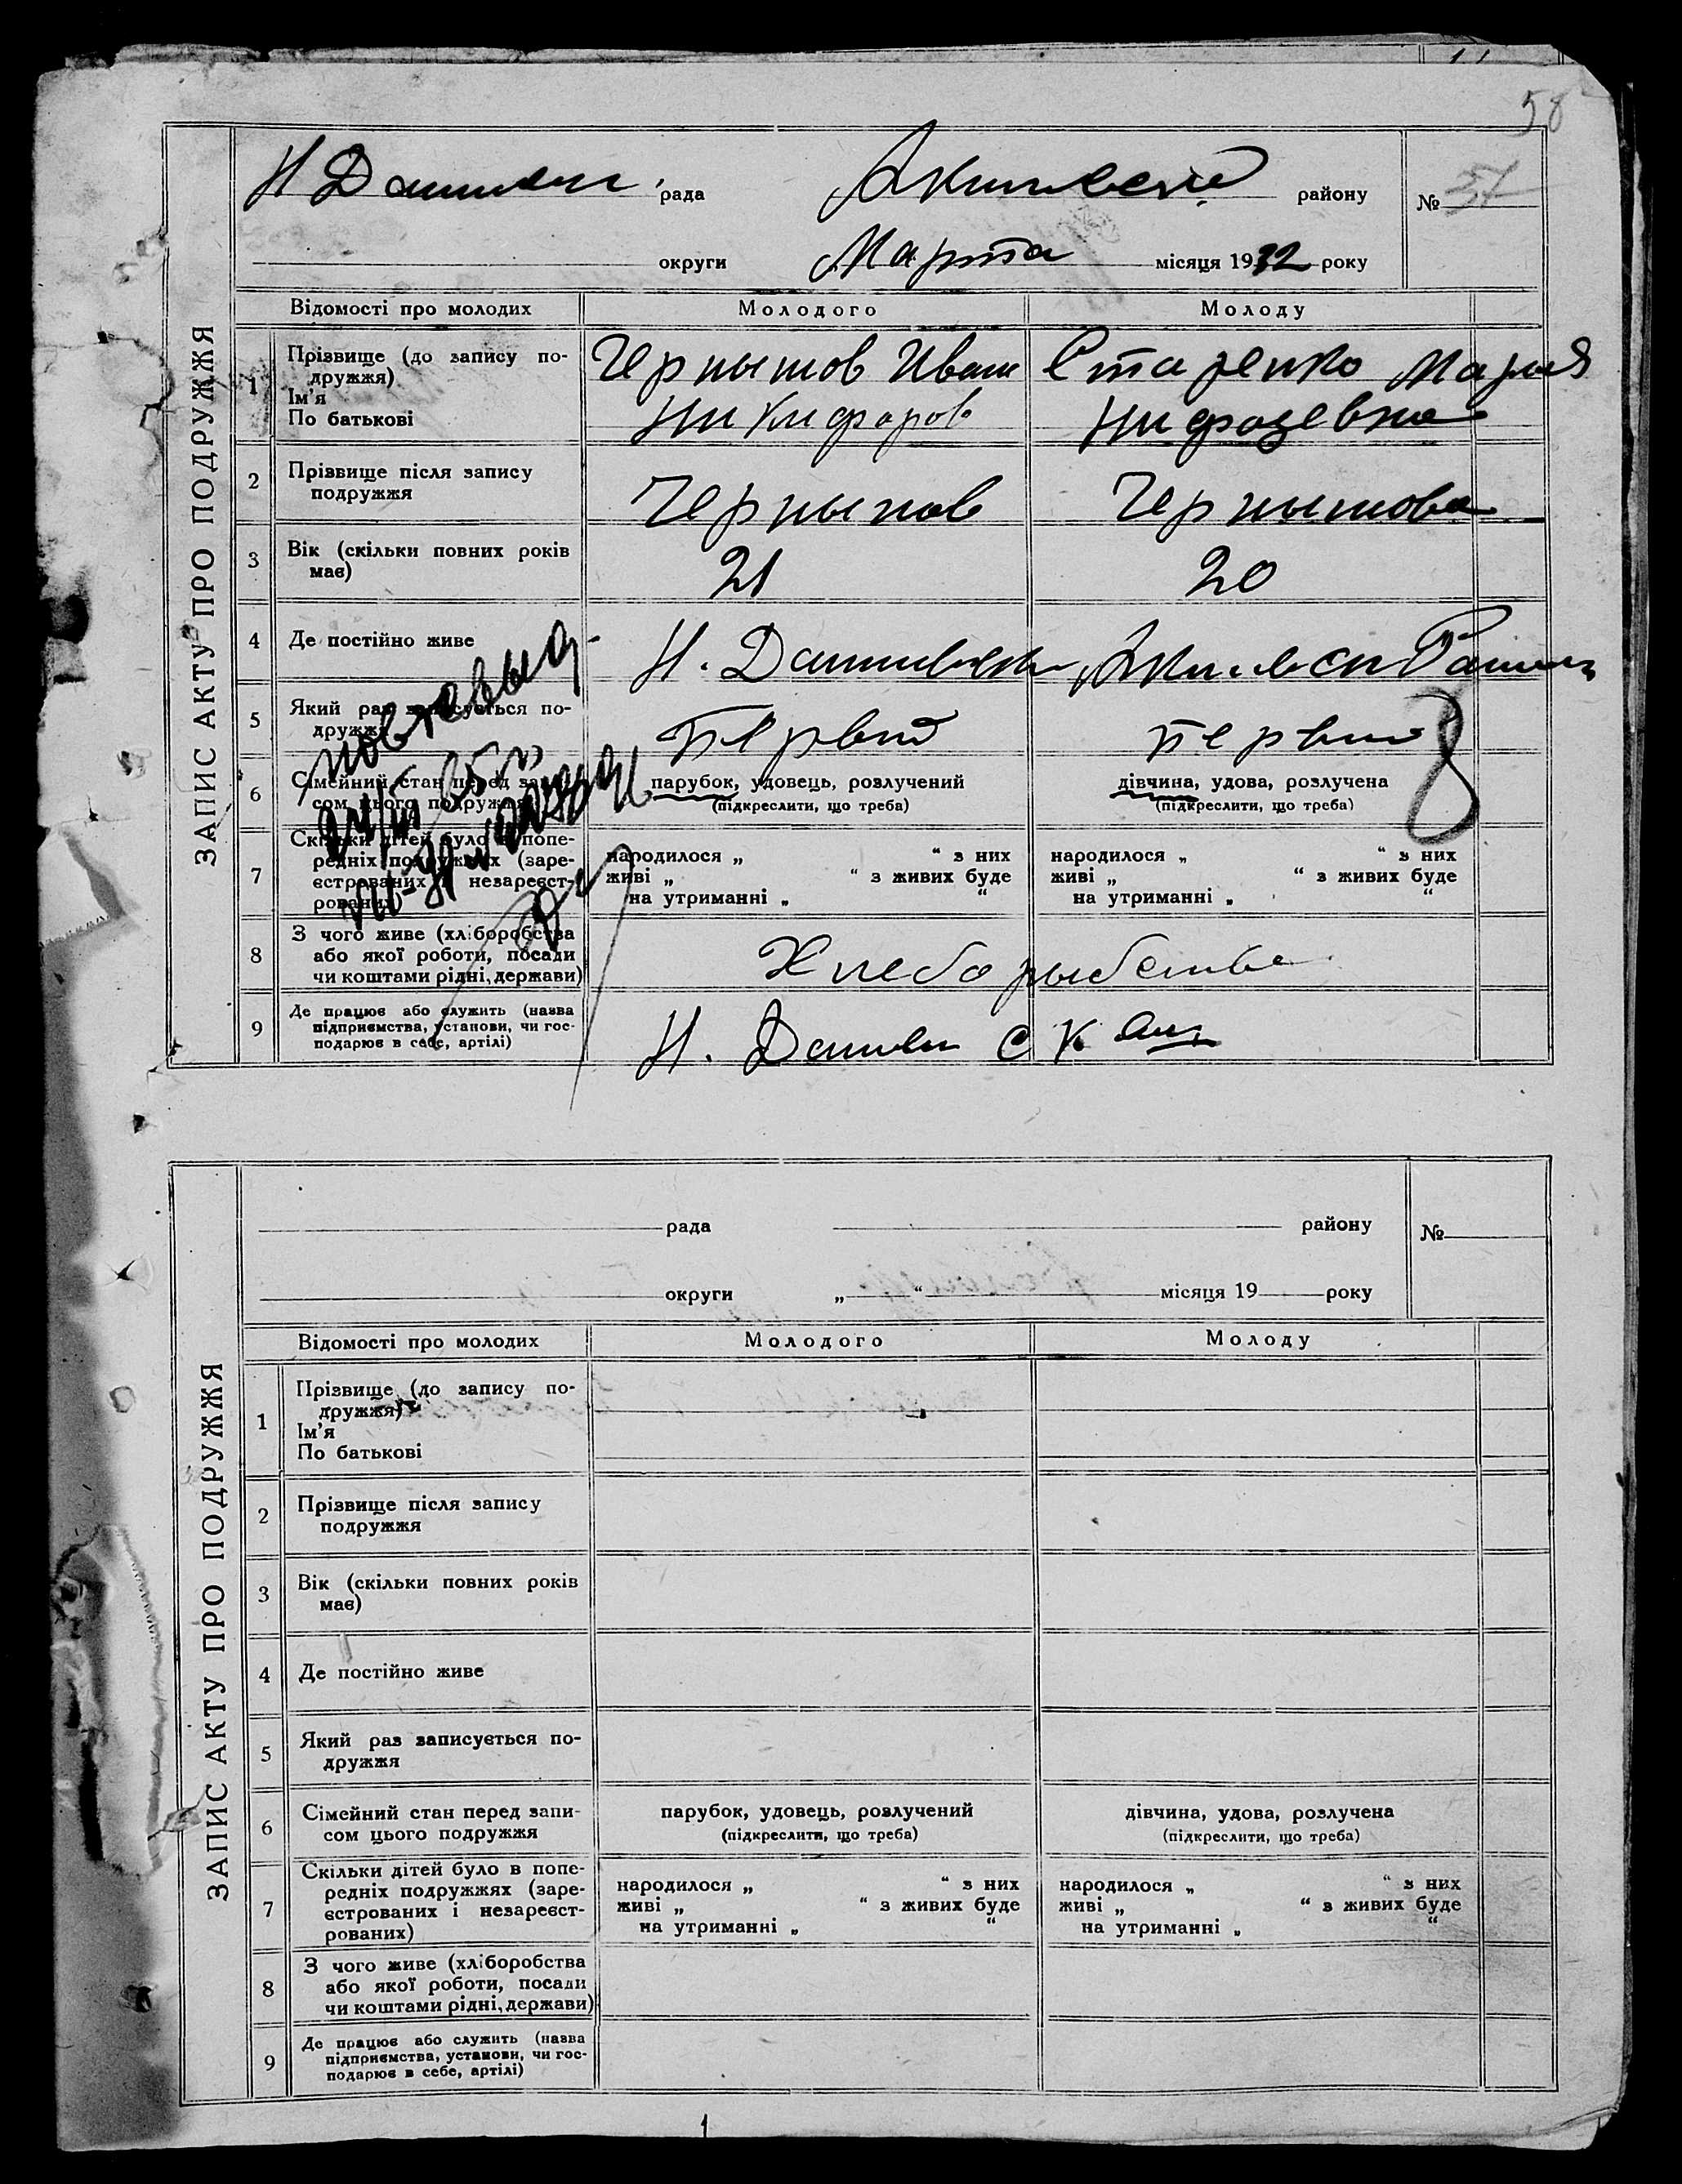 58
ЗАПИС АКТУ ПРО ПОДРУЖЖЯ
Н Данилвск. рада Акимовский району № 57
округи Марта місяця 1932 року
Відомості про молодих Молодого Молоду
1 Прізвище (до запису по-
дружжя)
Ім'я
По батькові
Чернышов Иван Старенко Мария
Никифоров
2 Прізвище після запису
подружжя
Чернышов Чернышова
3 Вік (скільки повних років
має)
21 20
4 Де постійно живе
Н. Даниловка
5 Який раз записується по-
дружжя
Первый первый
8
6 Сімейний стан перед запи-
сом цього подружжя
парубок, удовець, розлучений дівчина, удова, розлучена
(підкреслити, що треба) (підкреслити, що треба)
7 Скільки дітей було в попе-
редніх подружжях (заре-
єстрованих і незареєст-
рованих)
народилося „ “ з них народилося „ “ з них
живі „ “ з живих буде живі „ “ з живих буде
на утриманні „ “ на утриманні „ “
8 З чого живе (хліборобства
або якої роботи, посади
чи коштами рідні, держави)
9 Де працює або служить (назва
підприємства, установи, чи гос-
подарює в себе, артілі)
Н.
ЗАПИС АКТУ ПРО ПОДРУЖЖЯ
рада району №
округи „ “ місяця 19 року
Відомості про молодих Молодого Молоду
1 Прізвище (до запису по-
дружжя)
Ім'я
По батькові
2 Прізвище після запису
подружжя
3 Вік (скільки повних років
має)
4 Де постійно живе
5 Який раз записується по-
дружжя
6 Сімейний стан перед запи-
сом цього подружжя
парубок, удовець, розлучений дівчина, удова, розлучена
(підкреслити, що треба) (підкреслити, що треба)
7 Скільки дітей було в попе-
редніх подружжях (заре-
єстрованих і незареєст-
рованих)
народилося „ “ з них народилося „ “ з них
живі „ “ з живих буде живі „ “ з живих буде
на утриманні „ “ на утриманні „ “
8 З чого живе (хліборобства
або якої роботи, посади
чи коштами рідні, держави)
9 Де працює або служить (назва
підприємства, установи, чи гос-
подарює в себе, артілі)